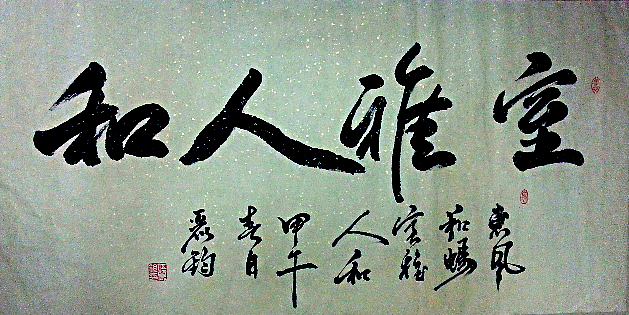 室雅人和
惠风
和畅
室雅
人和
甲午
春日